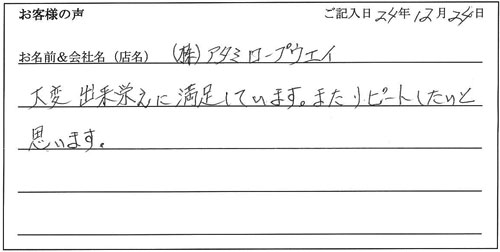 お客様の声 ご記入日 24年 12月 24日
お名前&会社名（店名） (株) アタミロープウエイ
大変 出来栄えに 満足しています。またリピートしたいと
思います。